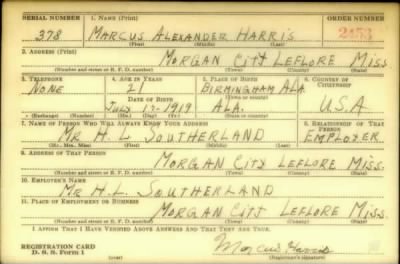 SERIAL NUMBER 1. NAME (Print) ORDER NUMBER
378 MARCUS ALEXANDER HARRIS 2453
(First) (Middle) (Last)
2. ADDRESS (Print)
MORGAN CITY LEFLORE MISS
(Number and street or R. F. D. number) (Town) (County) (State)
3. TELEPHONE 4. AGE IN YEARS 5. PLACE OF BIRTH 6. COUNTRY OF CITIZENSHIP
NONE 21 BIRMINGHAM ALA
DATE OF BIRTH (Town or county)
JULY 12-1919 ALA. U.S.A
(Exchange) (Number) (Mo.) (Day) (Yr.) (State or country)
7. NAME OF PERSON WHO WILL ALWAYS KNOW YOUR ADDRESS 8. RELATIONSHIP OF THAT PERSON
MR H L SOUTHERLAND EMPLOYER
(Mr., Mrs., Miss) (First) (Middle) (Last)
9. ADDRESS OF THAT PERSON
MORGAN CITY LEFLORE MISS.
(Number and street or R. F. D. number) (Town) (County) (State)
10. EMPLOYER'S NAME
MR H.L. SOUTHERLAND
11. PLACE OF EMPLOYMENT OR BUSINESS
MORGAN CITY LEFLORE MISS.
(Number and street or R. F. D. number) (Town) (County) (State)
I AFFIRM THAT I HAVE VERIFIED ABOVE ANSWERS AND THAT THEY ARE TRUE.
REGISTRATION CARD
D. S. S. Form 1 Marcus Harris
(over) (Registrant's signature)